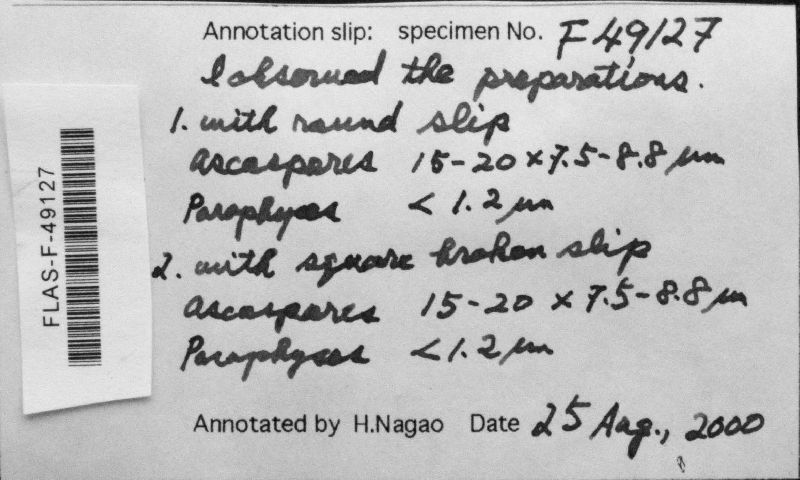 Annotation slip: specimen No. F 49127
I observed the preparations.
1. with round slip
Ascospores 15-20 × 7.5-8.8 µm
Paraphyses < 1.2 µm
2. with square broken slip
Ascospores 15-20 × 7.5-8.8 µm
Paraphyses < 1.2 µm
Annotated by H.Nagao Date 25 Aug., 2000
FLAS-F-49127